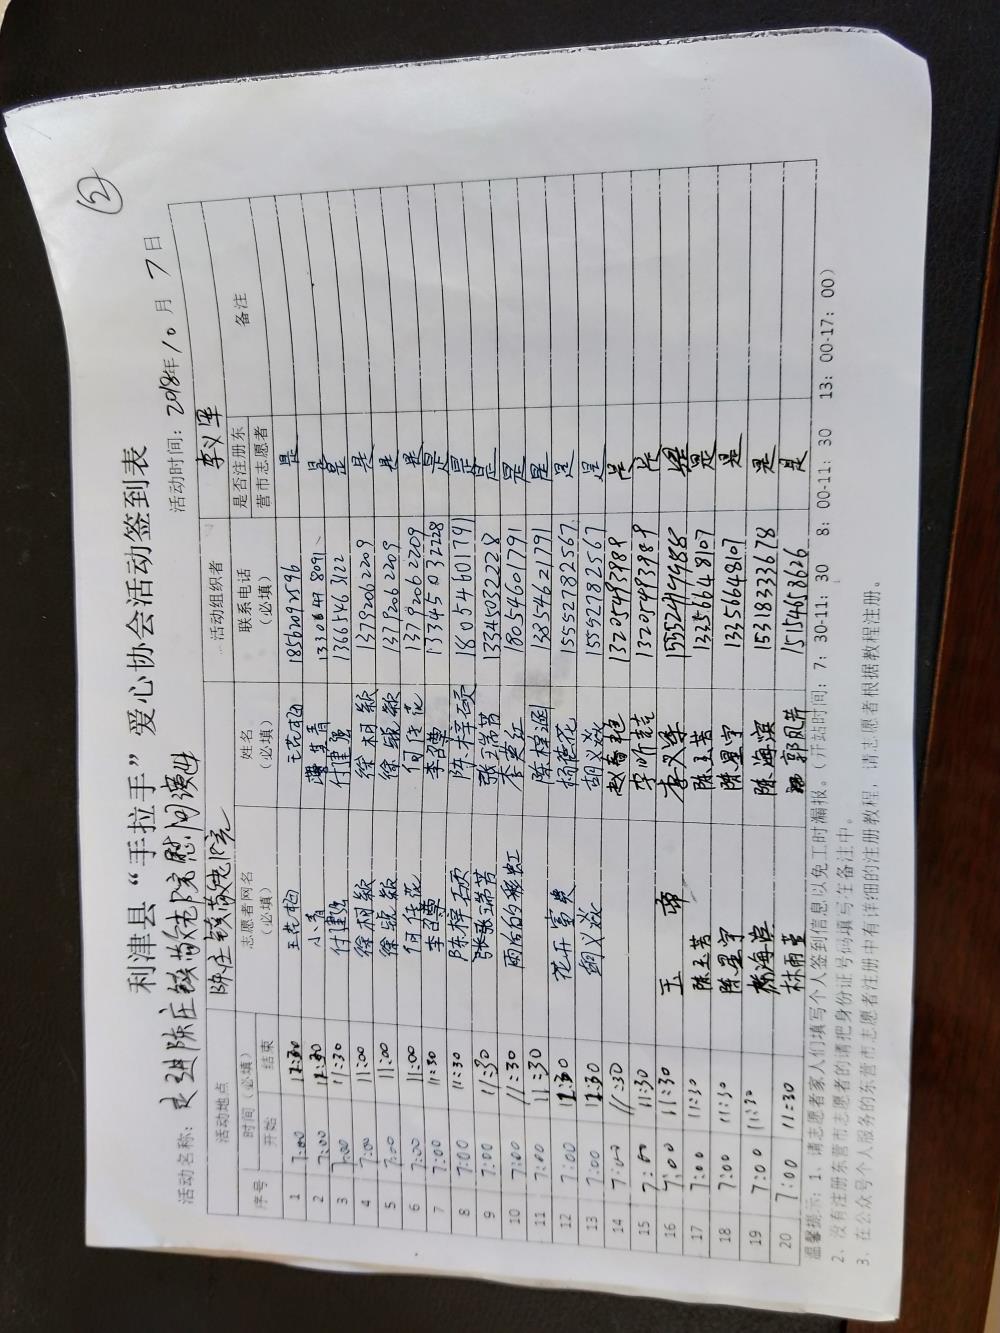 ②
利津县“手拉手”爱心协会活动签到表
活动名称：走进陈庄镇敬老院慰问演出 活动时间：2018年10月7日
活动地点 陈庄镇敬老院 活动组织者 李义军
序号 时间（必填） 开始 结束 志愿者网名（必填） 姓名（必填） 联系电话（必填） 是否注册东营市志愿者 备注
1 7:00 12:30 王花梅 王花梅 18562092596 是
2 7:00 12:30 小青 是
3 7:00 11:30 付建强 付建强 13665463122 是
4 7:00 11:00 徐相颖 徐相颖 13792062209 是
5 7:00 11:00 徐毓敏 徐毓敏 13792062209 是
6 7:00 11:00 何佳花 何佳花 13792062209 是
7 7:00 11:30 李召尊 李召尊 13345032228 是
8 7:00 11:30 陈梓硕 陈梓硕 18054601791 是
9 7:00 11:30 张瑞芳 张瑞芳 13345032228 是
10 7:00 11:30 雨后的彩虹 李英江 18054601791 是
11 7:00 11:30 13854621791 是
12 7:00 12:30 花开富贵 杨莲花 15552782567 是
13 7:00 12:30 胡义焱 胡义焱 15552782567 是
14 7:00 11:30 赵春艳 13205493889 是
15 7:00 11:30 李昕芫 13205493889 是
16 7:00 11:30 王 帝 李义军 15524194888 是
17 7:00 11:30 陈玉芳 陈玉芳 13356648107 是
18 7:00 11:30 陈星宇 陈星宇 13356648107 是
19 7:00 11:30 陈海滨 陈海滨 15318333678 是
20 7:00 11:30 林雨 郭凤芹 15154653626 是
温馨提示：1、请志愿者家人们填写个人签到信息以免工时漏报。（开站时间：7：30-11：30 8：00-11：30 13：00-17：00）
2、没有注册东营市志愿者的请把身份证号码填写在备注中。
3、在公众号个人服务的东营市志愿者注册中有详细的注册教程，请志愿者根据教程注册。